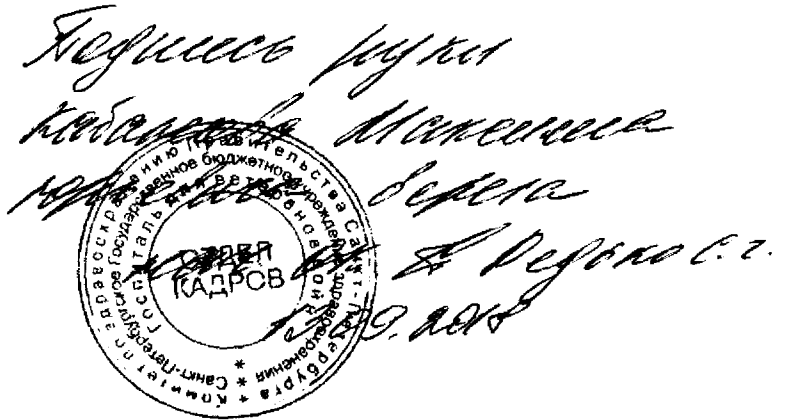 Подпись руки
Кабанова Максима
Юрьевича верна
Редько С.г.
13.09.2018
Комитет по здравоохранению Правительства Санкт-Петербурга *
Санкт-Петербургское государственное бюджетное учреждение здравоохранения *
Госпиталь для ветеранов войн
ОТДЕЛ
КАДРОВ